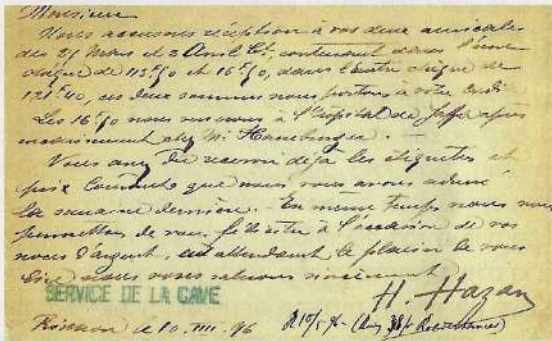 Monsieur
Nous accusons réception à vos deux amicales
des 29 Mars et 2 Avril Ct, contenant dans l'une
chèque de 113f50 et 16f50, dans l'autre chèque de
121f40, ces deux sommes nous portons à votre crédit
Les 16f50 nous versons à l'hopital de Jaffa après
encaissement chez Mr
Vous avez du recevoir déjà les étiquettes et
prix Courants que nous vous avons adressé
la semaine dernière. En même temps nous nous
permettons de vous féliciter à l'occasion de vos
noces d'argent, en attendant le plaisir de vous
lire nous vous saluons sincèrement
SERVICE DE LA CAVE
H. Hazan
le 10. IIII. 96 R 10/5 96